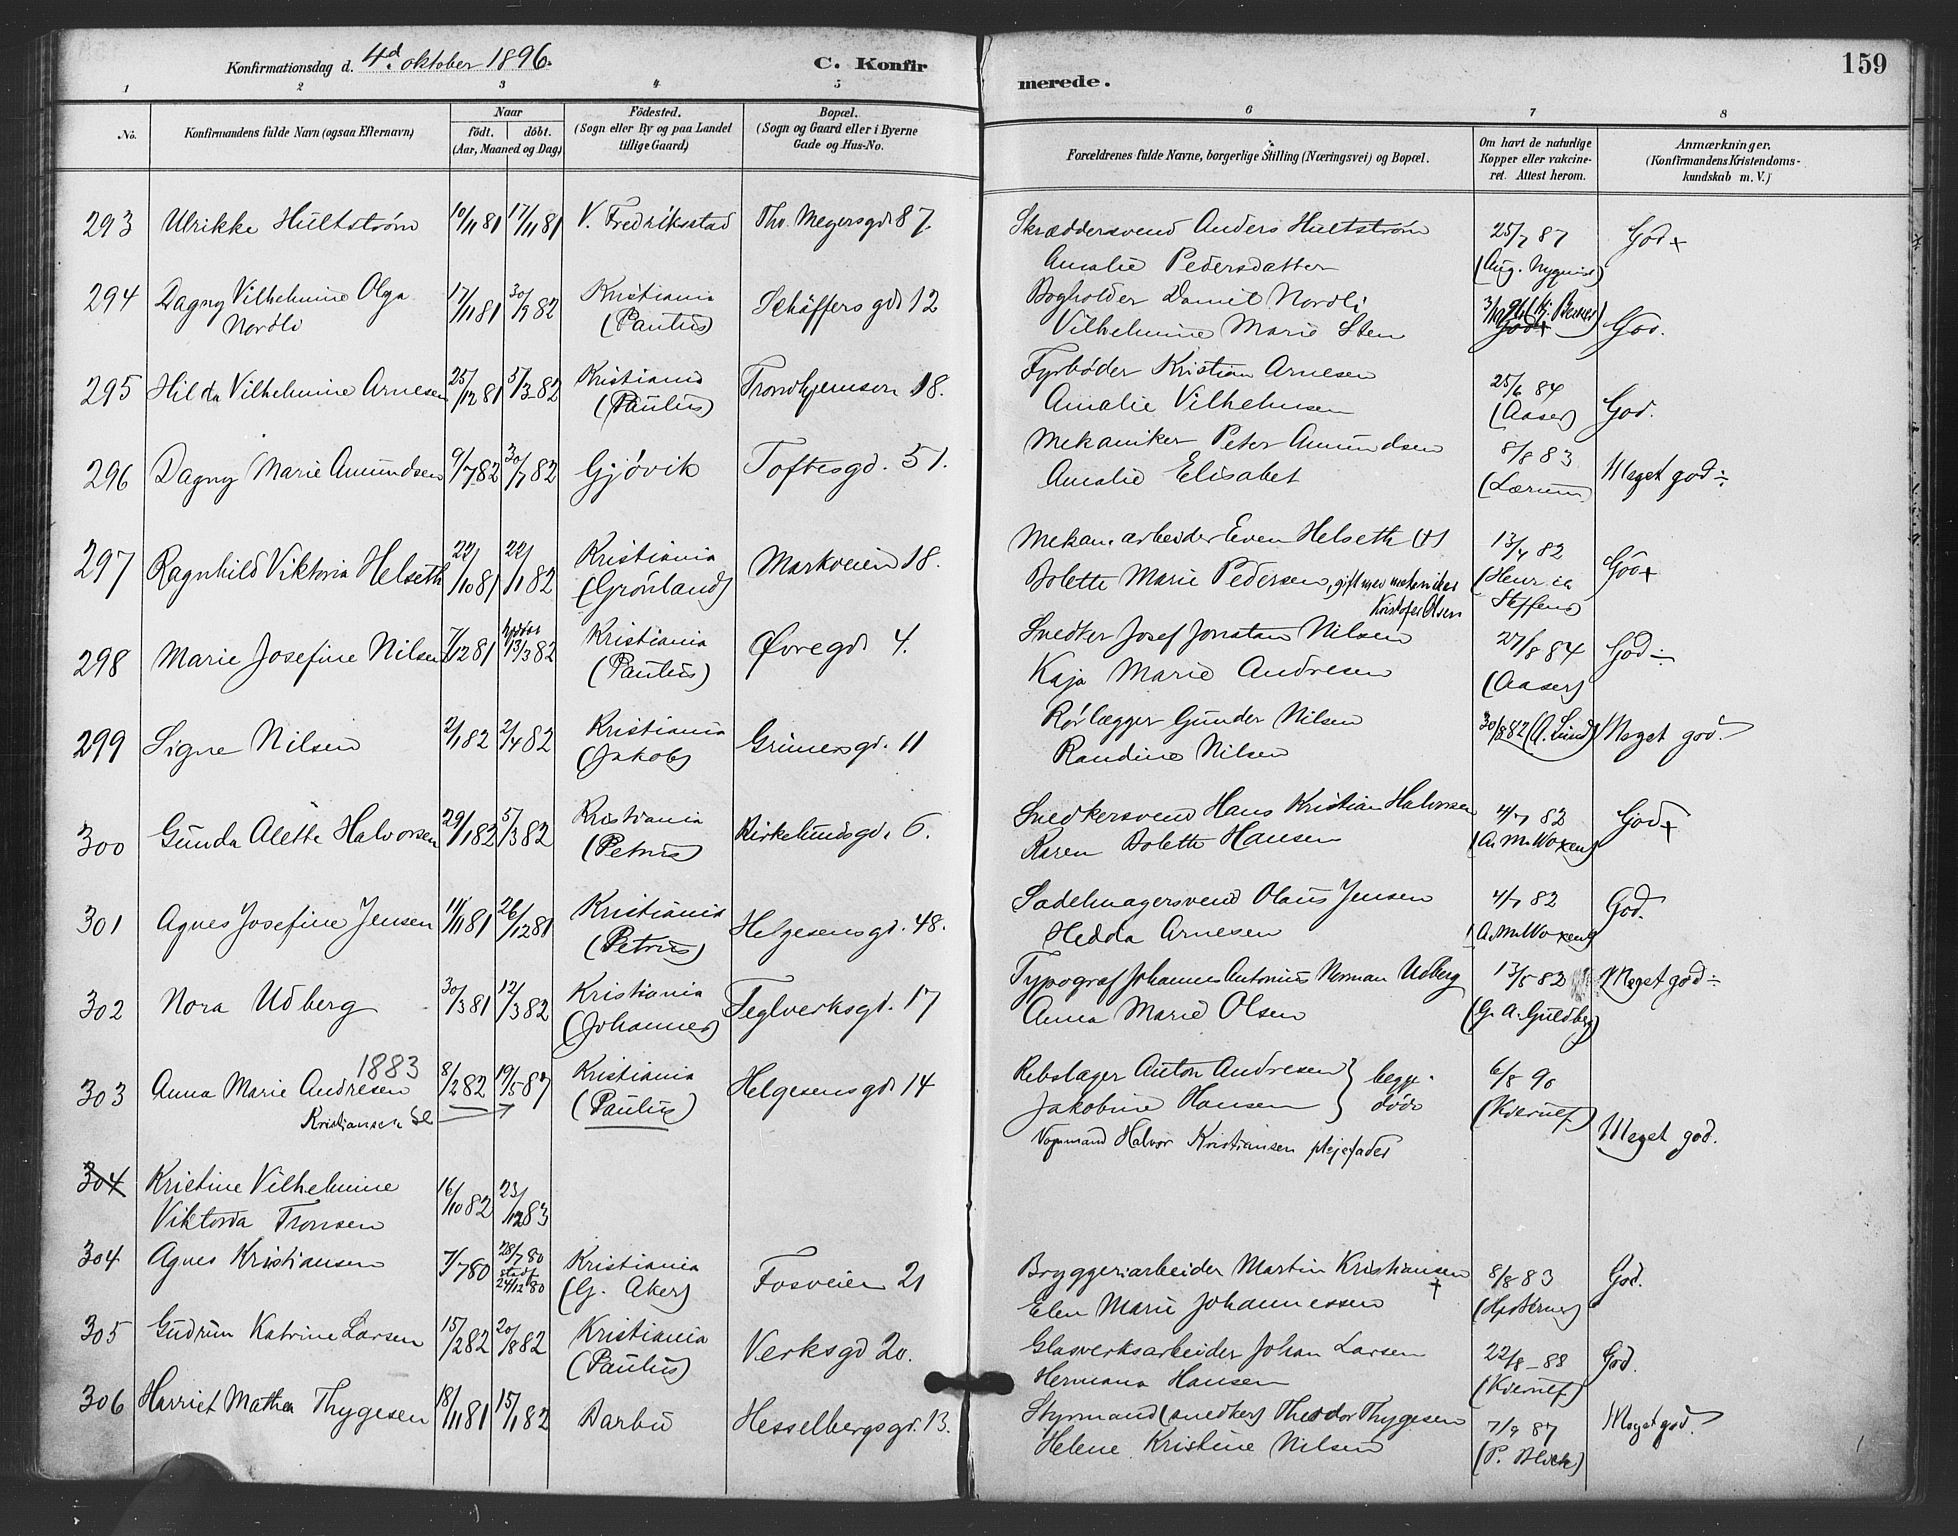 159
Konfirmationsdag d. 4d. oktober 1896.
C. Konfirmerede.
1 2 3 4 5 6 7 8
No.
Konfirmandens fulde Navn (ogsaa Efternavn)
Naar
födt. döbt.
(Aar, Maaned og Dag)
Födested.
(Sogn eller By og paa Landet
tillige Gaard)
Bopæl.
(Sogn og Gaard eller i Byerne
Gade og Hus-No.
Forældrenes fulde Navne, borgerlige Stilling (Næringsvei) og Bopæl.
Om havt de naturlige
Kopper eller vakcine-
ret. Attest herom.
Anmærkninger.
(Konfirmandens Kristendoms-
kundskab m. V.)
293 Ulrikke Hultström 10/11 81 17/11 81 V. Fredriksstad Th. Meyersgd. 87. Skræddersvend Anders Hultström 25/7 87 God +
Amalie Pedersdatter (Aug. Nyquist)
294 Dagny Vilhelmine Olga 17/11 81 30/7 82 Kristiania Schäffersgd. 12 Bogholder Daniel Nordli
Nordli (Paulus) Vilhelmine Marie Sten God.
295 Hilda Vilhelmine Arnesen 25/12 81 5/3 82 Kristiania Trondhjemsvn 18. Fyrbøder Kristian Arnesen 25/6 84 God.
(Paulus) Amalie Vilhelmsen (Aaser)
296 Dagny Marie Amundsen 9/7 82 30/7 82 Gjøvik Toftesgd. 51. Mekaniker Peter Amundsen 8/8 83 Meget god ÷
Amalie Elisabet (Lærum)
297 Ragnhild Viktoria Helseth 22/10 81 22/1 82 Kristiania Markveien 18. Mekan. arbeider Even Helseth (+) 13/4 82 God +
(Grønland) Bolette Marie Pedersen, gift med mekaniker (Henr.
Kristofer Olsen Steffens)
298 Marie Josefine Nilsen 7/12 81 hjdøbt 13/3 82 Kristiania Øvregd. 4. Snedker Josef Jonatan Nilsen 27/8 84 God ÷
(Paulus) Kaja Marie Andresen (Aaser)
299 Signe Nilsen 2/1 82 2/4 82 Kristiania Grünersgd. 11 Rørlægger Gunder Nilsen 30/8 82 (A. Lund) Meget god.
(Jakob) Randine Nilsen
300 Gunda Alette Halvorsen 29/1 82 5/3 82 Kristiania Birkelundsgd. 6. Snedkersvend Hans Kristian Halvorsen 4/7 82 God +
(Petrus) Karen Bolette Hansen (A. M. Woxen)
301 Agnes Josefine Jensen 11/11 81 26/12 81 Kristiania Helgesensgd. 48. Sadelmagersvend Olaus Jensen 4/7 82 God.
(Petrus) Hedda Arnesen (A. M. Woxen)
302 Nora Udberg 30/3 81 12/3 82 Kristiania Teglverksgd. 17 Typograf Johannes Antonius Norman Udberg 13/5 82 Meget god ÷
(Johannes) Anna Marie Olsen (G. A. Guldberg)
1883
303 Anna Marie Andresen 8/2 82 19/5 87 Kristiania Helgesensgd. 14 Rebslager Anton Andresen } begge 6/8 90
Kristiansen (Paulus) Jakobine Hansen } døde (Kierulf) Meget god.
Vognmand Halvor Kristiansen plejefader
304 Kristine Vilhelmine 16/10 82 23/12 83
Viktoria Tronsen
304 Agnes Kristiansen 7/7 80 28/7 80 Kristiania Fosveien 21 Bryggeriarbeider Martin Kristiansen + 8/8 83 God.
stadf. 24/12 80 (G. Aker) Elen Marie Johannessen
305 Gudrun Katrine Larsen 15/2 82 20/8 82 Kristiania Verksgd 20. Glasverksarbeider Johan Larsen 22/8 88 God.
(Paulus) Hermana Hansen (Kierulf)
306 Harriet Mathea Thygesen 18/11 81 15/1 82 Barbu Hesselbergsgd. 13. Styrmand (snedker) Theodor Thygesen 7/9 87 Meget god.
Helene Kristine Nilsen (P. Block)